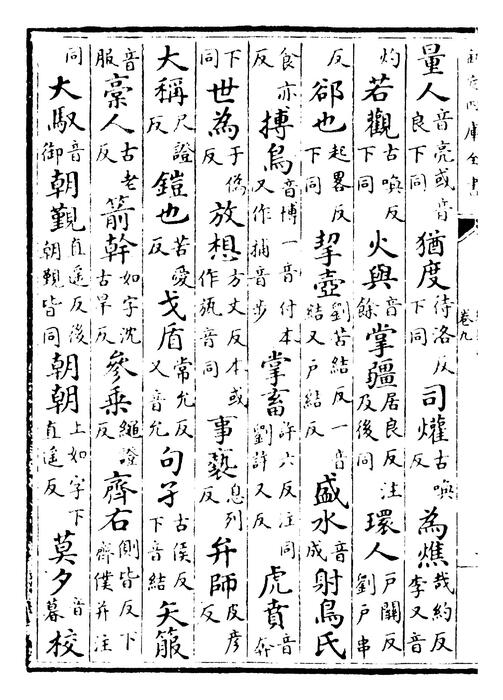 量人音亮或音良下同猶度待洛反下同司爟古喚反為燋哉約反李又音
灼若觀古喚反下同火與音餘掌疆居良反注及後同環人戶關反劉戶串
反郤也起畧反下同挈壺劉苦結反一音結又戶結反盛水音成射鳥氏
食亦反搏鳥音博一音付本又作捕音步掌畜許六反注同劉許又反虎賁音奔
下同世為于偽反放想方丈反本或作瓬音同事褻息列反弁師皮彥反
大稱尺證反鎧也苦愛反戈盾常允反又音允句孑古侯反下音結矢箙
音服槀人古老反箭幹如字沈古旱反參乗繩證反齊右側皆反下齊僕并注
同大馭音御朝覲直遥反後朝覲皆同朝朝上如字下直遥反莫夕音暮校
卷九